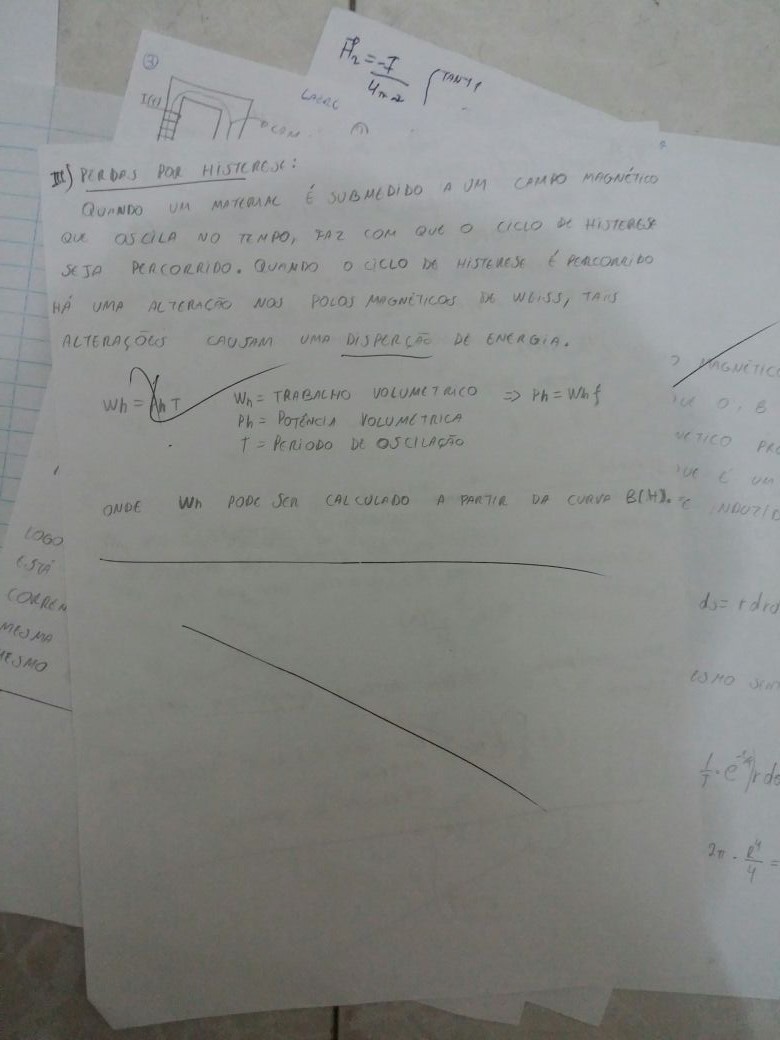 H₂ = -I
4πr²
3
I(t)
III) PERDAS POR HISTERESE:
QUANDO UM MATERIAL É SUBMEDIDO A UM CAMPO MAGNÉTICO
QUE OSCILA NO TEMPO, FAZ COM QUE O CICLO DE HISTERESE
SEJA PERCORRIDO. QUANDO O CICLO DE HISTERESE É PERCORRIDO
HÁ UMA ALTERAÇÃO NOS POLOS MAGNÉTICOS DE WEISS, TAIS
ALTERAÇÕES CAUSAM UMA DISPERÇÃO DE ENERGIA.
Wh = Ph T Wh = TRABALHO VOLUMETRICO => Ph = Wh f
Ph = POTÊNCIA VOLUMÉTRICA
T = PERIODO DE OSCILAÇÃO
ONDE Wh PODE SER CALCULADO A PARTIR DA CURVA B(H).
MAGNÉTICO
O, B
É UM
LOGO
ESTÁ
MESMA
ds = r dr
2π · R⁴/4 =